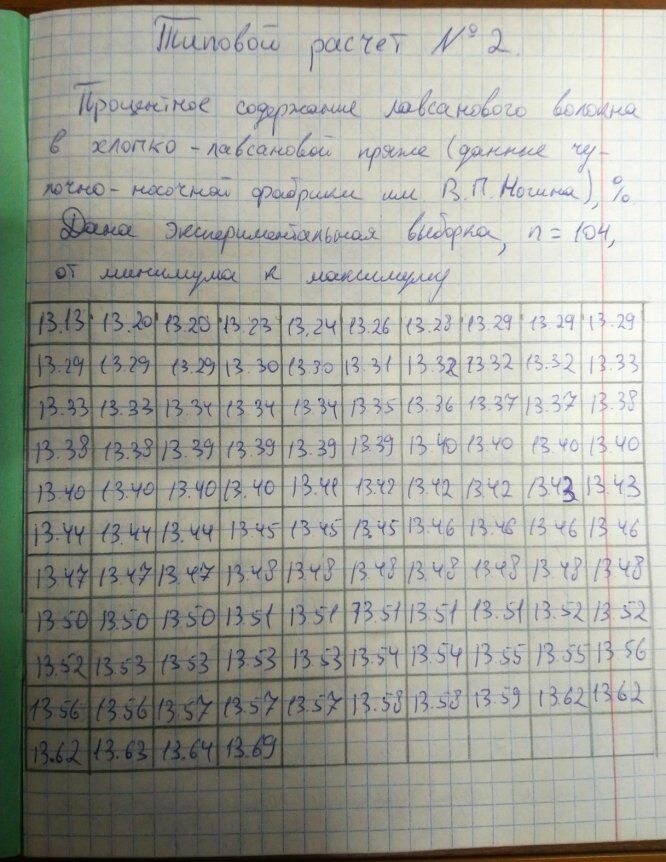 Типовой расчет № 2.
Процентное содержание лавсанового волокна
в хлопко-лавсановой пряже (данные чу-
лочно-носочной фабрики им. В.П.Ногина), %
Дана экспериментальная выборка, n = 104,
от минимума к максимуму
13.13 13.20 13.20 13.23 13.24 13.26 13.28 13.29 13.29 13.29
13.29 13.29 13.29 13.30 13.30 13.31 13.32 13.32 13.32 13.33
13.33 13.33 13.34 13.34 13.34 13.35 13.36 13.37 13.37 13.38
13.38 13.38 13.39 13.39 13.39 13.39 13.40 13.40 13.40 13.40
13.40 13.40 13.40 13.40 13.41 13.42 13.42 13.42 13.43 13.43
13.44 13.44 13.44 13.45 13.45 13.45 13.46 13.46 13.46 13.46
13.47 13.47 13.47 13.48 13.48 13.48 13.48 13.48 13.48 13.48
13.50 13.50 13.50 13.51 13.51 13.51 13.51 13.51 13.52 13.52
13.52 13.53 13.53 13.53 13.53 13.54 13.54 13.55 13.55 13.56
13.56 13.56 13.57 13.57 13.57 13.58 13.58 13.59 13.62 13.62
13.62 13.63 13.64 13.69